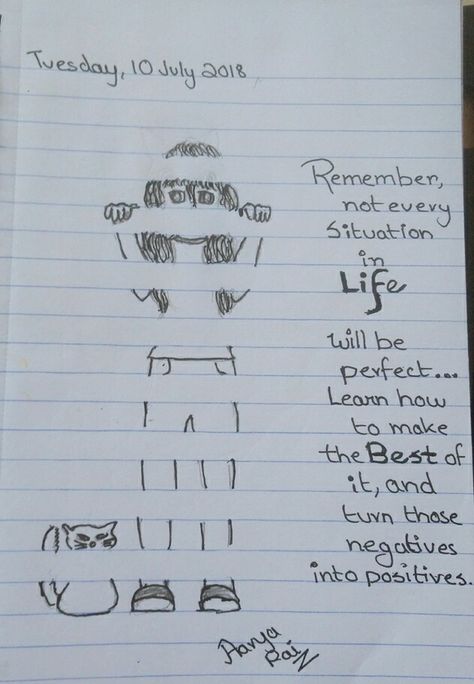 Tuesday, 10 July 2018
Remember,
not every
Situation
in
Life
will be
perfect...
Learn how
to make
the Best of
it, and
turn those
negatives
into positives.
Aarya
Rain